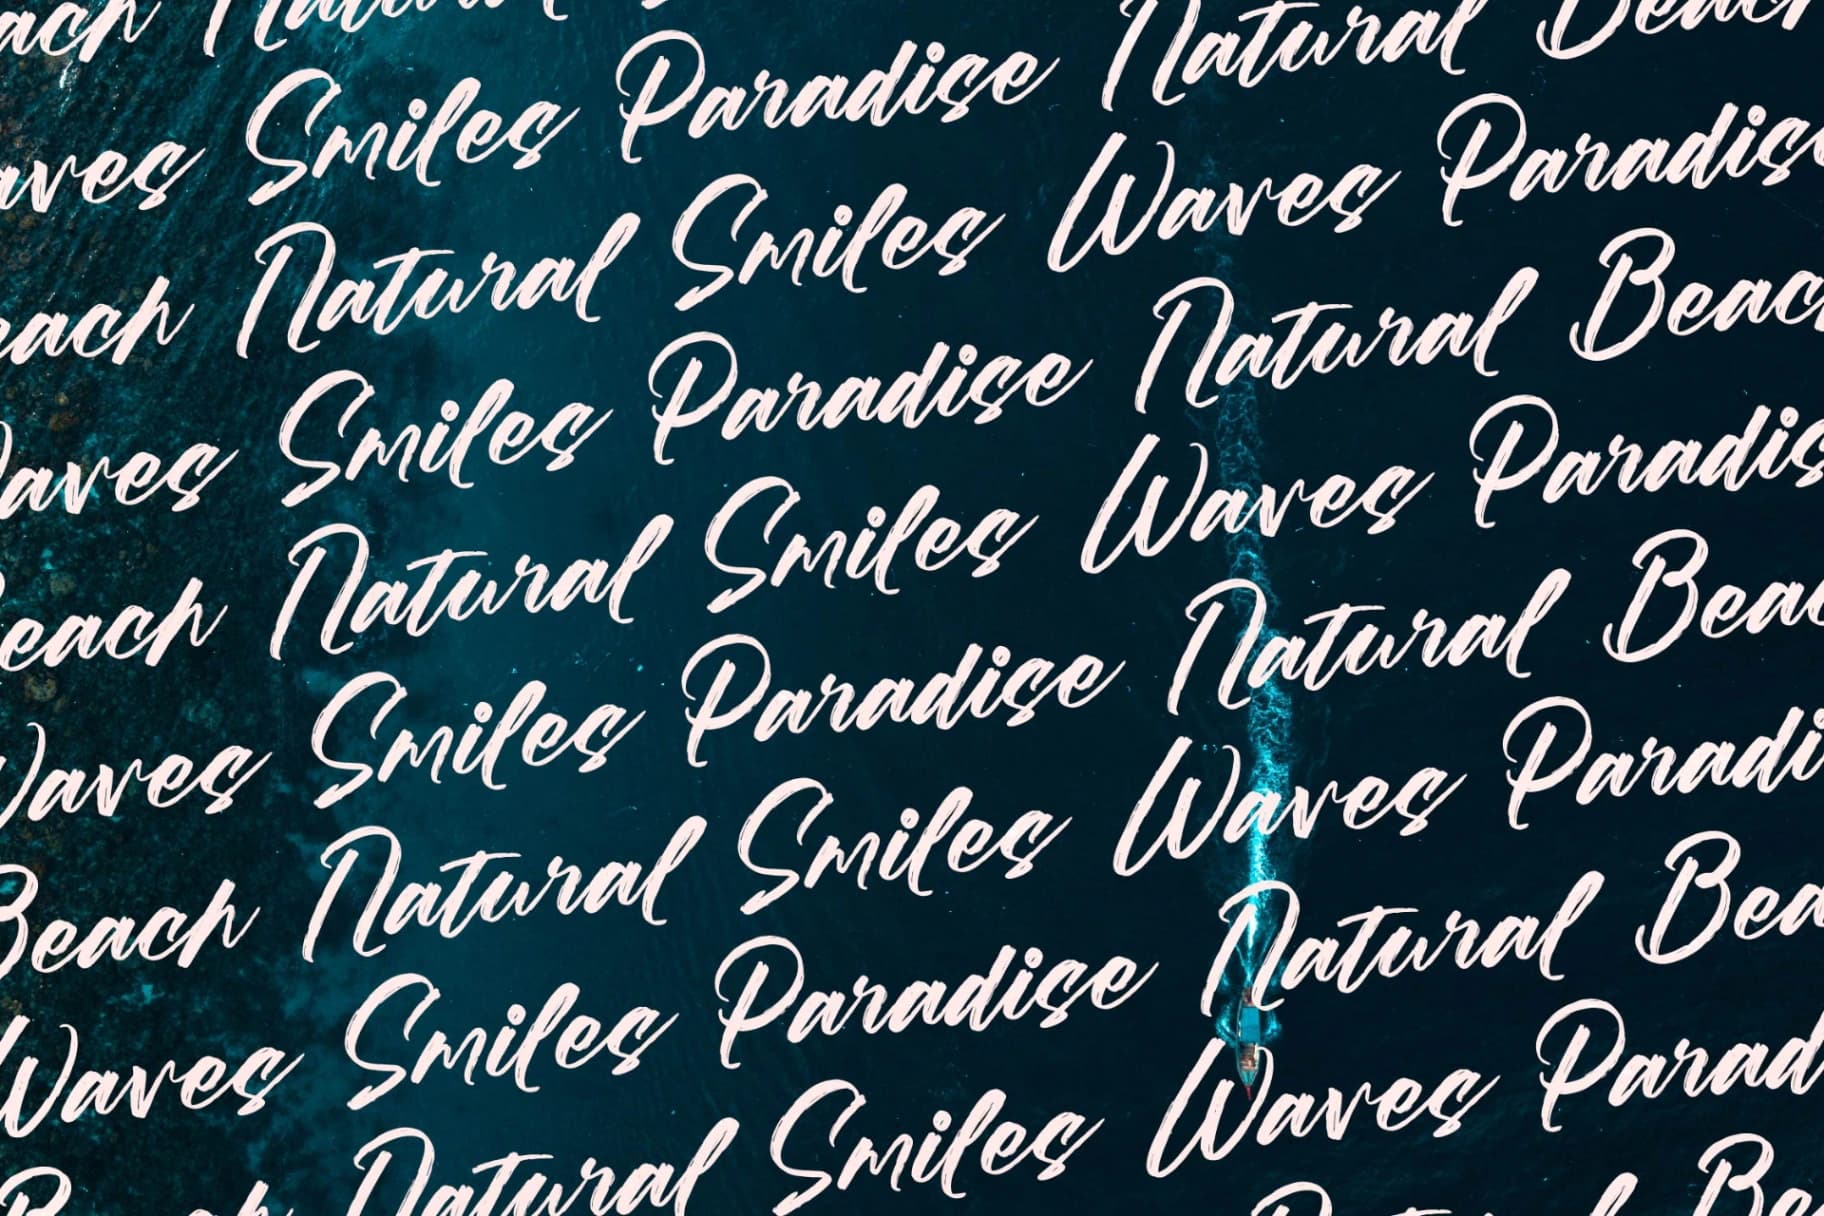 each Natural
Waves Smiles Paradise Natural Beach
Beach Natural Smiles Waves Paradise
Waves Smiles Paradise Natural Beach
Beach Natural Smiles Waves Paradis
Waves Smiles Paradise Natural Beac
Beach Natural Smiles Waves Paradi
Waves Smiles Paradise Natural Bea
Beach Natural Smiles Waves Parad
Natural Be